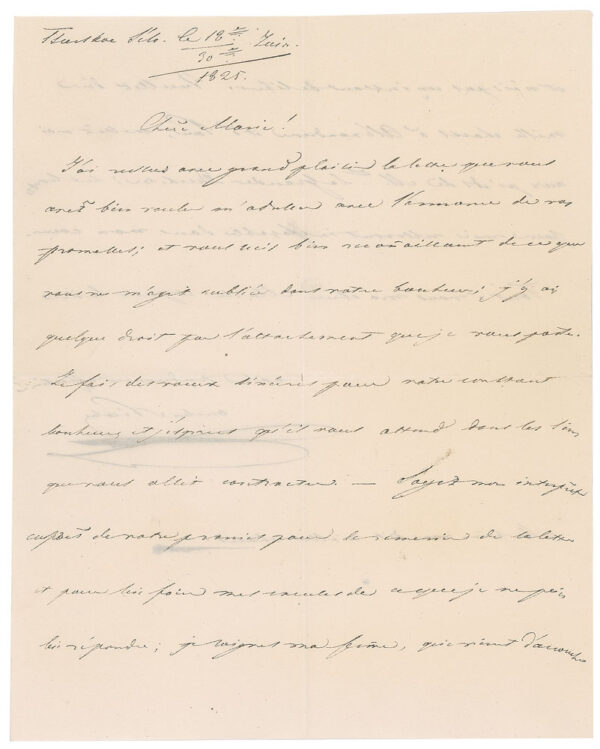 le 18
30 Juin.
1825.
Chère Marie!
J'ai avec grand plaisir la lettre que vous
avez bien voulu m'adresser avec l'annonce de vos
promesses; et vous suis bien reconnaissant de ce que
vous ne m'ayez oublié dans votre bonheur; j'y ai
quelque droit par l'attachement que je vous porte.
Je fais des voeux sincères pour votre constant
bonheur et j'espère qu'il vous attend dans les liens
que vous allez contracter — Soyez mon interprète
auprès de votre promis pour le remercier de sa lettre
et pour lui faire mes excuses de ce que je ne puis
lui répondre; je soigne ma femme, qui vient d'accoucher